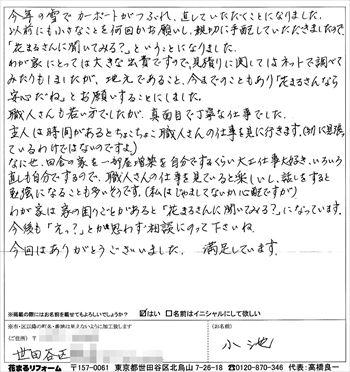 今年の雪でカーポートがつぶれ、直していただくことになりました。
以前にも小さなことを何回かお願いし、親切に手配していただきましたので
「花まるさんに聞いてみる？」ということになりました。
わが家にとっては大きな出費ですので、見積りに関してはネットで調べて
みたりもしましたが、地元であること、今までのこともあり「花まるさんなら
安心だね」とお願いすることにしました。
職人さんも若い方でしたが、真面目で丁寧な仕事でした。
主人は時間があるとちょこちょこ職人さんの仕事を見に行きます。(別に監視し
ているわけではないのですよ)
なにせ、田舎の家を一部屋増築を自分でするくらい大工仕事大好き、いろいろ
直も自分でするので、職人さんの仕事を見ていると楽しいし、話しをすると
勉強になることも多いそうです。(私はじゃましてないか心配ですが)
わが家は家の困りごとがあると「花まるさんに聞いてみる？」になっています。
今後も「えっ？」とか思わず相談にのって下さいね。
今回はありがとうございました。 満足しています。
※掲載の際にはお名前を載せてもよろしいでしょうか？ ☑はい □名前はイニシャルにして欲しい
※市・区以降の町名・番地は見えないように加工致します
(ご住所) 〒
(お名前)
世田谷区
小池
花まるリフォーム 〒157-0061 東京都世田谷区北烏山7-26-18 ☎0120-870-346 代表:高橋良一